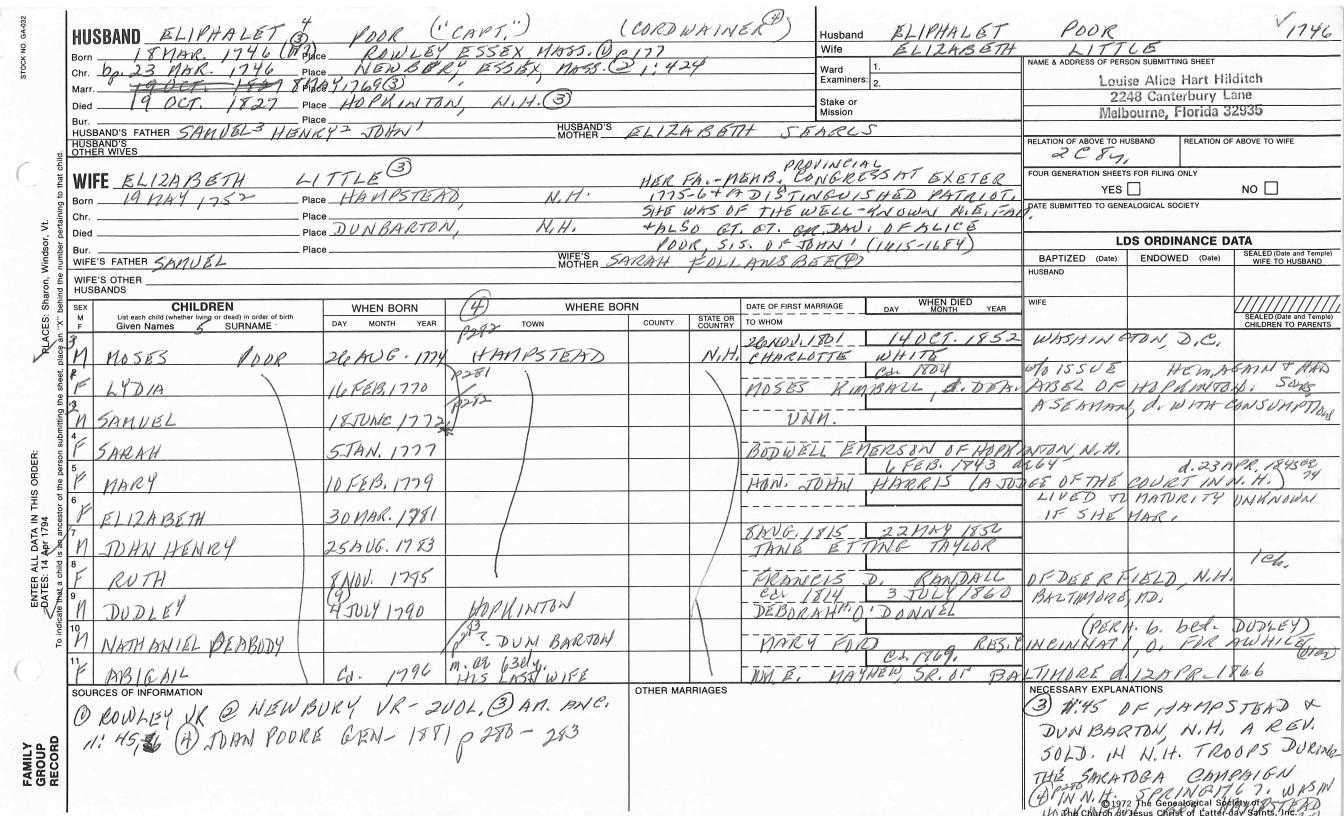 STOCK NO. GA-032
HUSBAND ELIPHALET 4 ③ POOR ("CAPT.") (CORDWAINER ④)
Born 18 MAR. 1746 Place ROWLEY ESSEX MASS. ① p 177
Chr. bp. 23 MAR. 1746 Place NEWBURY, ESSEX, MASS. ② 1:424
Marr. 19 OCT. 1827 8 MAY, 1769 ③
Died 19 OCT. 1827 Place HOPKINTON, N.H. ③
Bur. Place
HUSBAND'S FATHER SAMUEL³ HENRY² JOHN¹ HUSBAND'S MOTHER ELIZABETH SEARLS
HUSBAND'S OTHER WIVES
Husband ELIPHALET POOR ✓ 1746
Wife ELIZABETH LITTLE
Ward 1.
Examiners: 2.
Stake or Mission
NAME & ADDRESS OF PERSON SUBMITTING SHEET
Louise Alice Hart Hilditch
2248 Canterbury Lane
Melbourne, Florida 32935
RELATION OF ABOVE TO HUSBAND RELATION OF ABOVE TO WIFE
2C 8y,
FOUR GENERATION SHEETS FOR FILING ONLY
YES NO
DATE SUBMITTED TO GENEALOGICAL SOCIETY
WIFE ELIZABETH LITTLE ③
Born 19 MAY 1752 Place HAMPSTEAD, N.H.
Chr. Place
Died Place DUNBARTON, N.H.
Bur. Place
HER FA.-MEMB. PROVINCIAL CONGRESS AT EXETER
1775-6 + A DISTINGUISHED PATRIOT.
SHE WAS OF THE WELL-KNOWN N.E. FAM.
+ALSO GT. GT. GR. DAU. OF ALICE
POOR, SIS. OF JOHN¹ (1615-1684)
WIFE'S FATHER SAMUEL WIFE'S MOTHER SARAH FOLLANSBEE ④
WIFE'S OTHER HUSBANDS
LDS ORDINANCE DATA
BAPTIZED (Date) ENDOWED (Date) SEALED (Date and Temple) WIFE TO HUSBAND
HUSBAND
WIFE
SEALED (Date and Temple) CHILDREN TO PARENTS
SEX M F
CHILDREN
List each child (whether living or dead) in order of birth
Given Names 5 SURNAME
WHEN BORN
DAY MONTH YEAR
④ WHERE BORN
TOWN COUNTY STATE OR COUNTRY
DATE OF FIRST MARRIAGE
TO WHOM
WHEN DIED
DAY MONTH YEAR
p282
26 NOV. 1801 14 OCT. 1852 WASHINGTON, D.C.
3 M MOSES POOR 26 AUG. 1774 HAMPSTEAD N.H. CHARLOTTE WHITE
p281 ca 1804 W/O ISSUE
F LYDIA 16 FEB. 1770 MOSES KIMBALL,
p282
M SAMUEL 18 JUNE 1772 UNM. A SEAMAN, d. WITH CONSUMPTION
4 F SARAH 5 JAN. 1777 BODWELL EMERSON OF HOPKINTON, N.H.
6 FEB. 1843 d. 23 APR. 1845
5 F MARY 10 FEB. 1779 HON. JOHN HARRIS (A JUDGE OF THE COURT IN N.H.)
6 F ELIZABETH 30 MAR. 1781 LIVED TO MATURITY UNKNOWN
IF SHE MAR.
8 AUG. 1815 22 MAY 1856
7 M JOHN HENRY 25 AUG. 1783 JANE ETTING TAYLOR
8 F RUTH 8 NOV. 1795 FRANCIS D. RANDALL OF DEERFIELD, N.H. 1 ch.
ca 1814 3 JULY 1860 BALTIMORE, MD.
9 M DUDLEY 4 JULY 1790 HOPKINTON DEBORAH O'DONNEL
(PERH. b. bet. DUDLEY)
10 M NATHANIEL PEABODY ? DUNBARTON MARY FORD RES. CINCINNATI, O. FOR AWHILE
m. as
HIS LAST WIFE ca 1869.
11 F ABIGAIL Ca. 1796 WM. E. MAYHEW, SR. OF BALTIMORE d. 12 APR. 1866
SOURCES OF INFORMATION
① ROWLEY VR ② NEWBURY VR- 2VOL, ③ AM. ANC.
11: 45, ④ JOHN POORE GEN- 1881 p 280 - 283
OTHER MARRIAGES
NECESSARY EXPLANATIONS
③ 11:45 OF HAMPSTEAD &
DUNBARTON, N.H. A REV.
SOLD. IN N.H. TROOPS DURING
THE SARATOGA CAMPAIGN
④ p280 IN N.H. SPRING 1767. WAS IN
©1972 The Genealogical Society of
The Church of Jesus Christ of Latter-day Saints, Inc.
FAMILY GROUP RECORD
ENTER ALL DATA IN THIS ORDER:
DATES: 14 Apr 1794
PLACES: Sharon, Windsor, Vt.
To indicate that a child is an ancestor of the person submitting the sheet, place an "X" behind the number pertaining to that child.